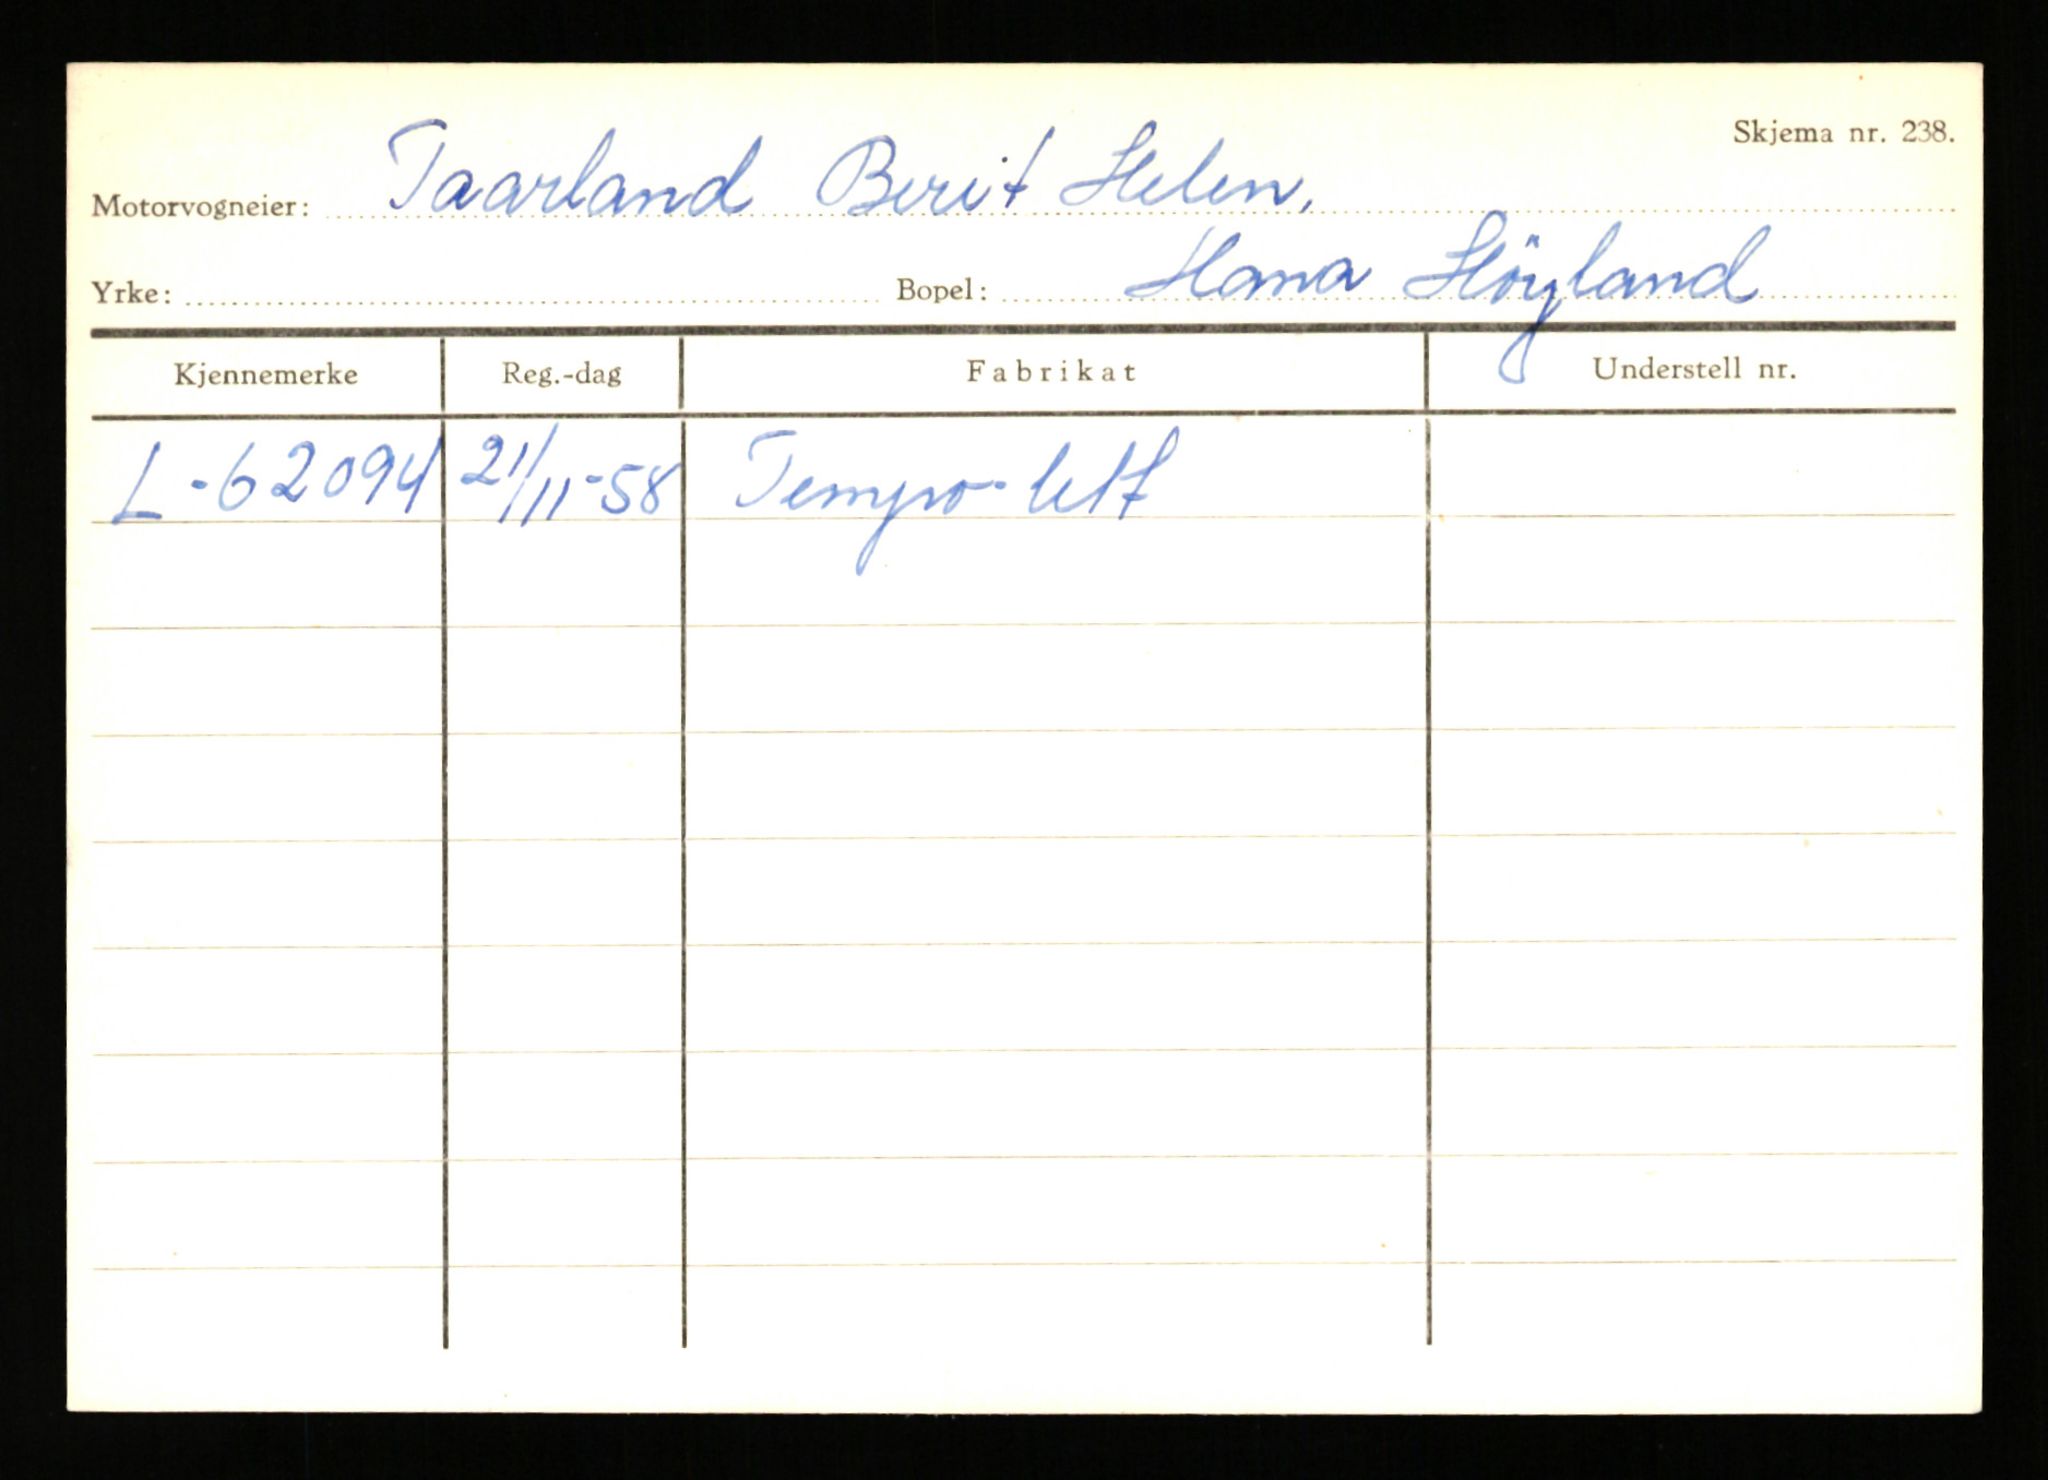 Skjema nr. 238.
Motorvogneier: Taarland Berit Helen.
Yrke: Bopel: Hana Höyland
Kjennemerke Reg.-dag Fabrikat Understell nr.
L-62094 21/11-58 Tempo-lett